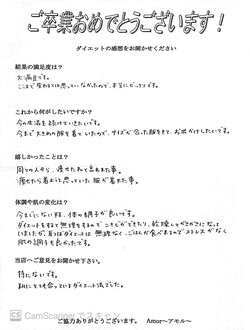 ご卒業おめでとうございます！
ダイエットの感想をお聞かせください
結果の満足度は？
大満足です。
ここまで変わるとは思っていなかったので、本当にビックリです。
これから何がしたいですか？
今の生活を続けていきたいです。
今まで大きめの服を着ていたので、サイズが合った服をきて、お出かけしたいです。
嬉しかったことは？
周りの人から、痩せたねと言われた事。
痩せたら着ようと思っていた服が着れた事。
体調や肌の変化は？
今までにない程、体の調子が良いです。
ダイエットをすると無理をするので
いましたが、ダイエットは無理なく、ごはんが食べれるのでストレスがなく
肌の調子も良かったです。
当店へご意見をお聞かせ下さい。
特にないです。
私にとても合っているダイエット法でした。
CS CamScannerでスキャン
ご協力ありがとうございます。 Amor～アモル～